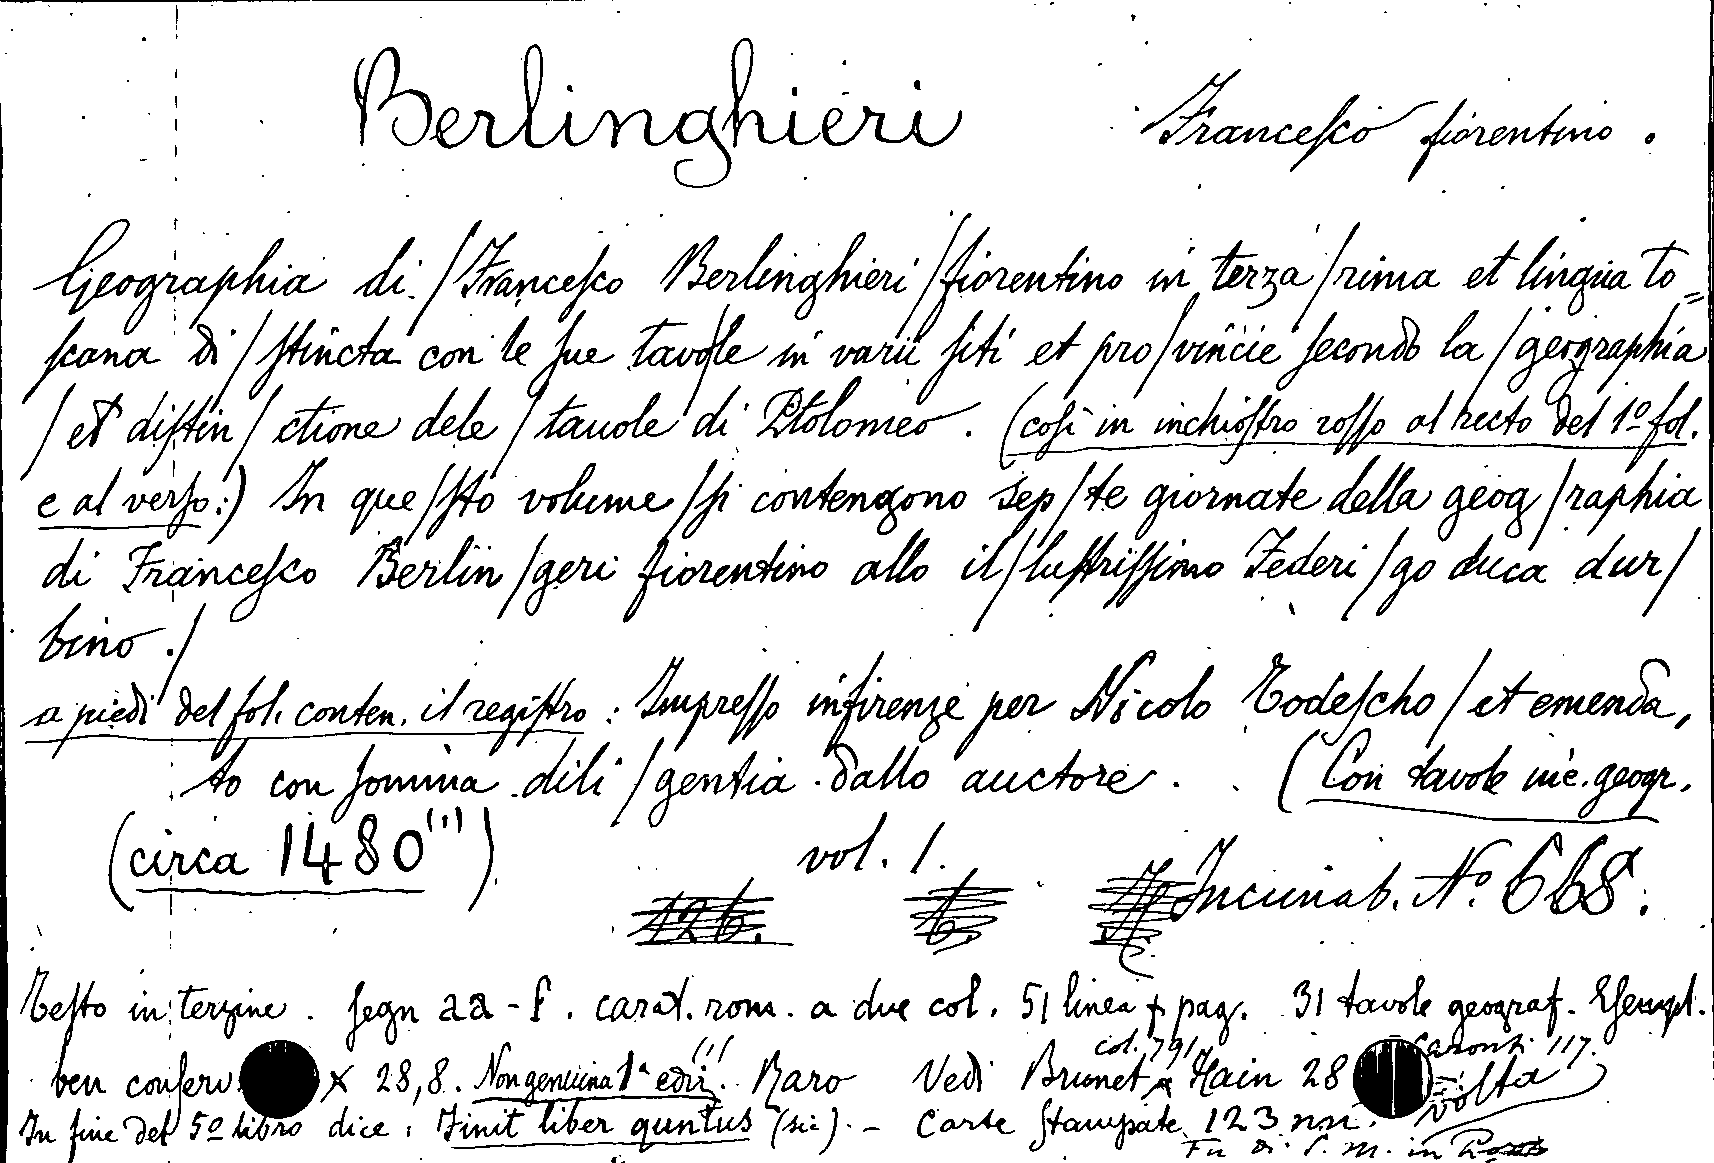 Berlinghieri Francesco fiorentino.
Geographia di / Francesco Berlinghieri / fiorentino in terza / rima et lingua to=
scana di / stincta con le sue tavo/le in varii siti et pro/vincie secondo la / geographia
/ et distin / ctione dele / tauole di Ptolomeo. (così in inchiostro rosso al recto del 1º fol.
e al verso:) In que/sto volume / si contengono sep/te giornate della geog/raphia
di Francesco Berlin/geri fiorentino allo il/lustrissimo Federi/go duca dur/
bino./
a piedi del fol. conten. il registro: Impresso infirenze per Nicolo Todescho / et emenda,
to con somma dili/gentia dallo auctore. (Con tavole inc. geogr.
(circa 1480(1)) vol. 1.
126. 6. Incunab. Nº 668.
Testo in terzine. segn aa - f. carat. rom. a due col. 51 linea x pag. 31 tavole geograf. Esempl.
ben conserv x 28,8. Non genuina 1ª ediz. (1) Raro Vedi Brunet col. 791 Hain 28 117. volta
In fine del 5º libro dice: Finit liber quntus (sic). - Carte stampate 123 nn.
Fu di S. M. in